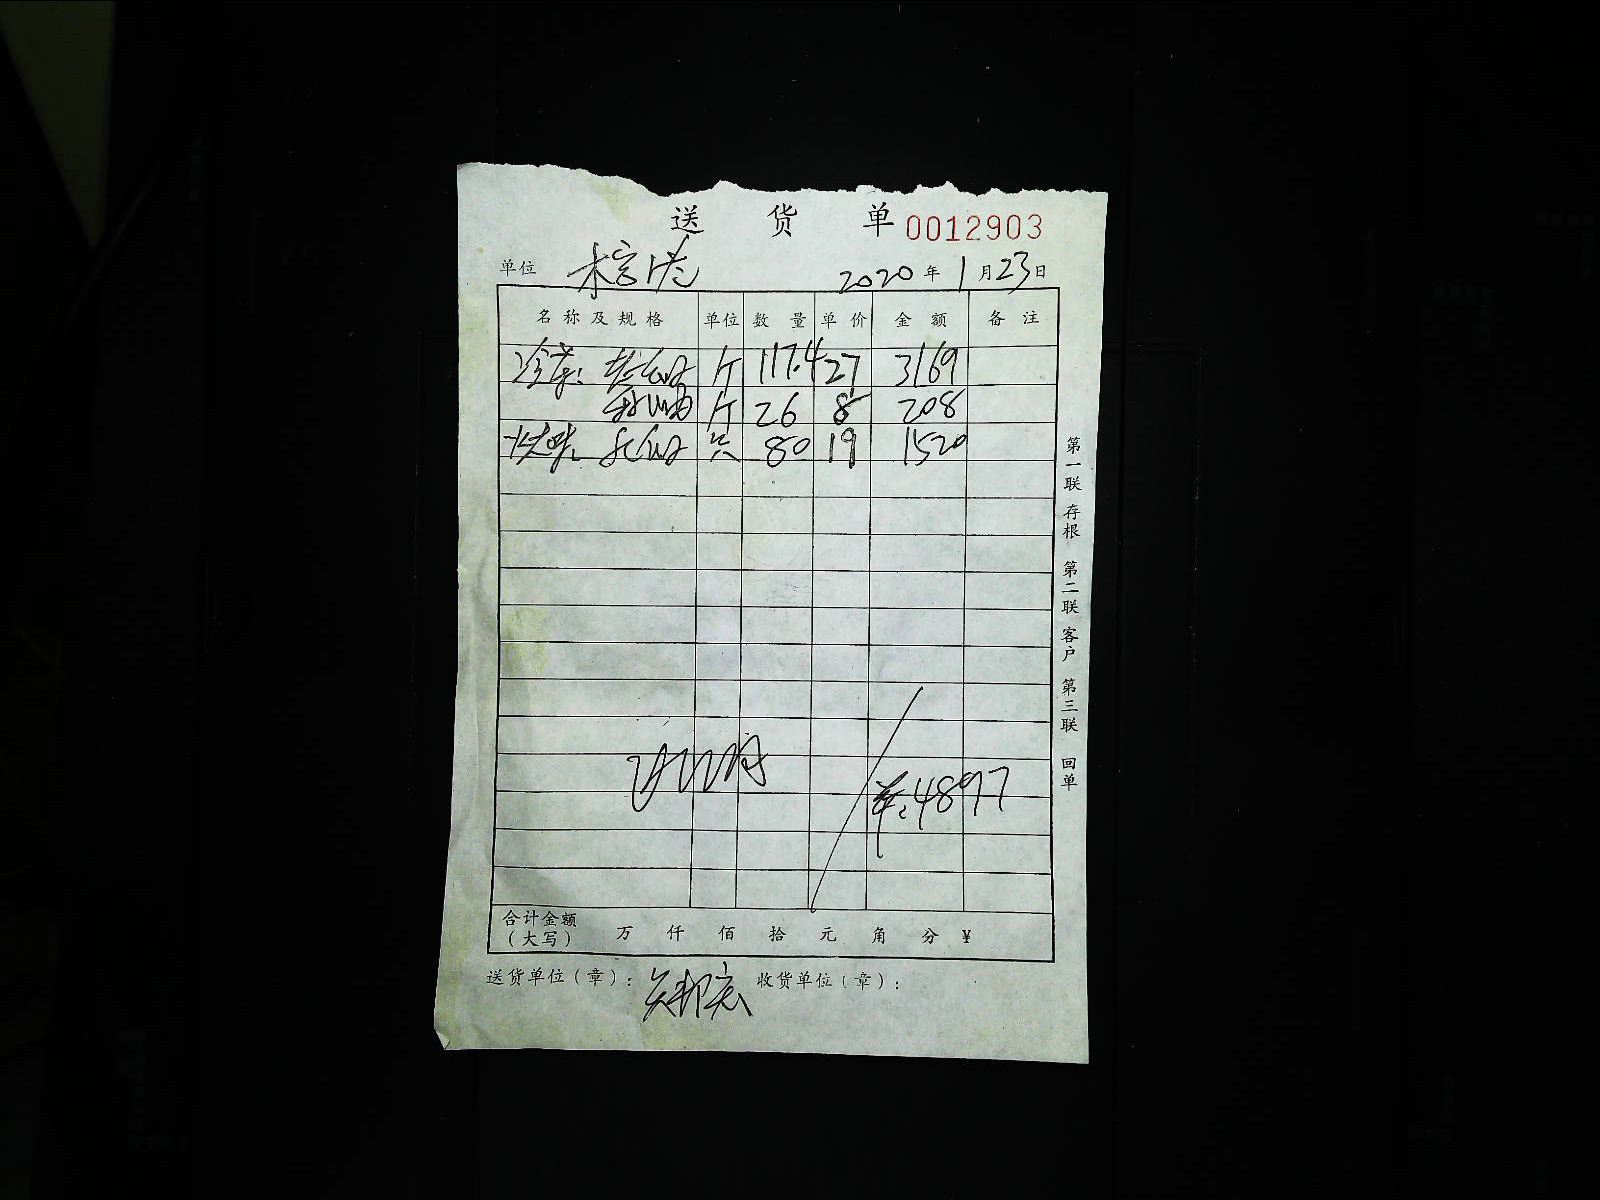 送 货 单 0012903
单位 2020 年 1 月 23 日
名称及规格 单位 数量 单价 金额 备注
冷菜: 斤 117.4 27 3169
斤 26 8 208
烧味: 只 80 19 1520
¥:4897
合计金额(大写) 万 仟 佰 拾 元 角 分 ¥
送货单位(章): 收货单位(章):
第一联 存根 第二联 客户 第三联 回单